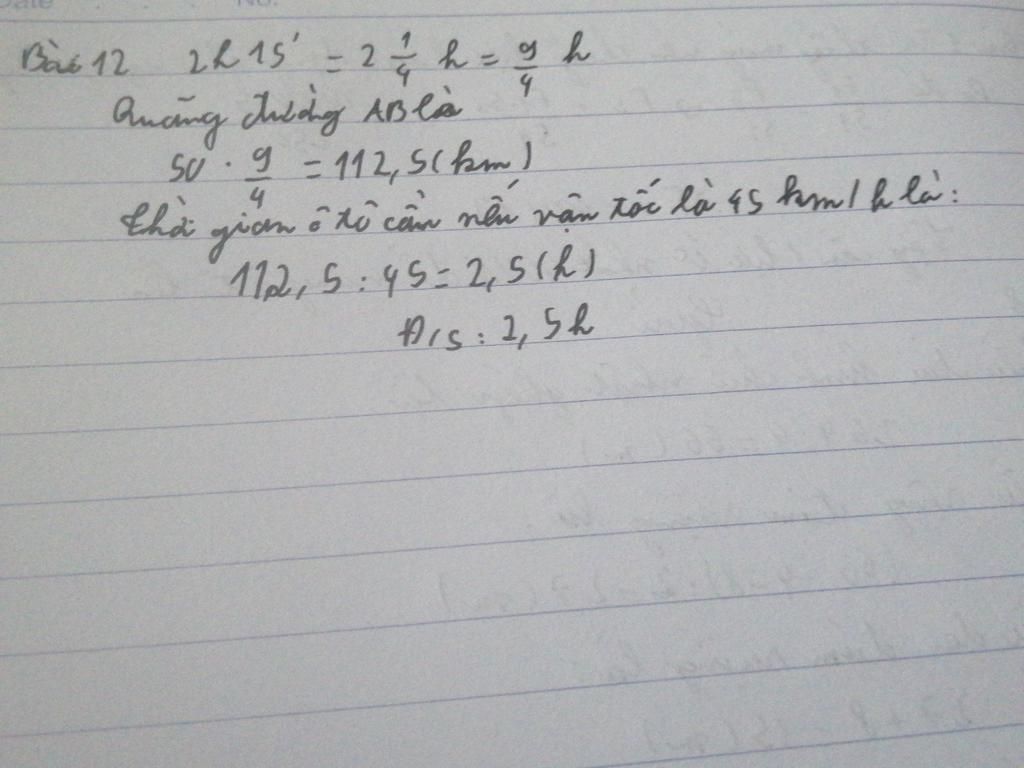 Date No.
Bài 12 2h 15' = 2 1/4 h = 9/4 h
Quãng đường AB là
50 . 9/4 = 112,5 (km)
thời gian ô tô cần nếu vận tốc là 45 km/h là:
112,5 : 45 = 2,5 (h)
Đ/s : 2,5h